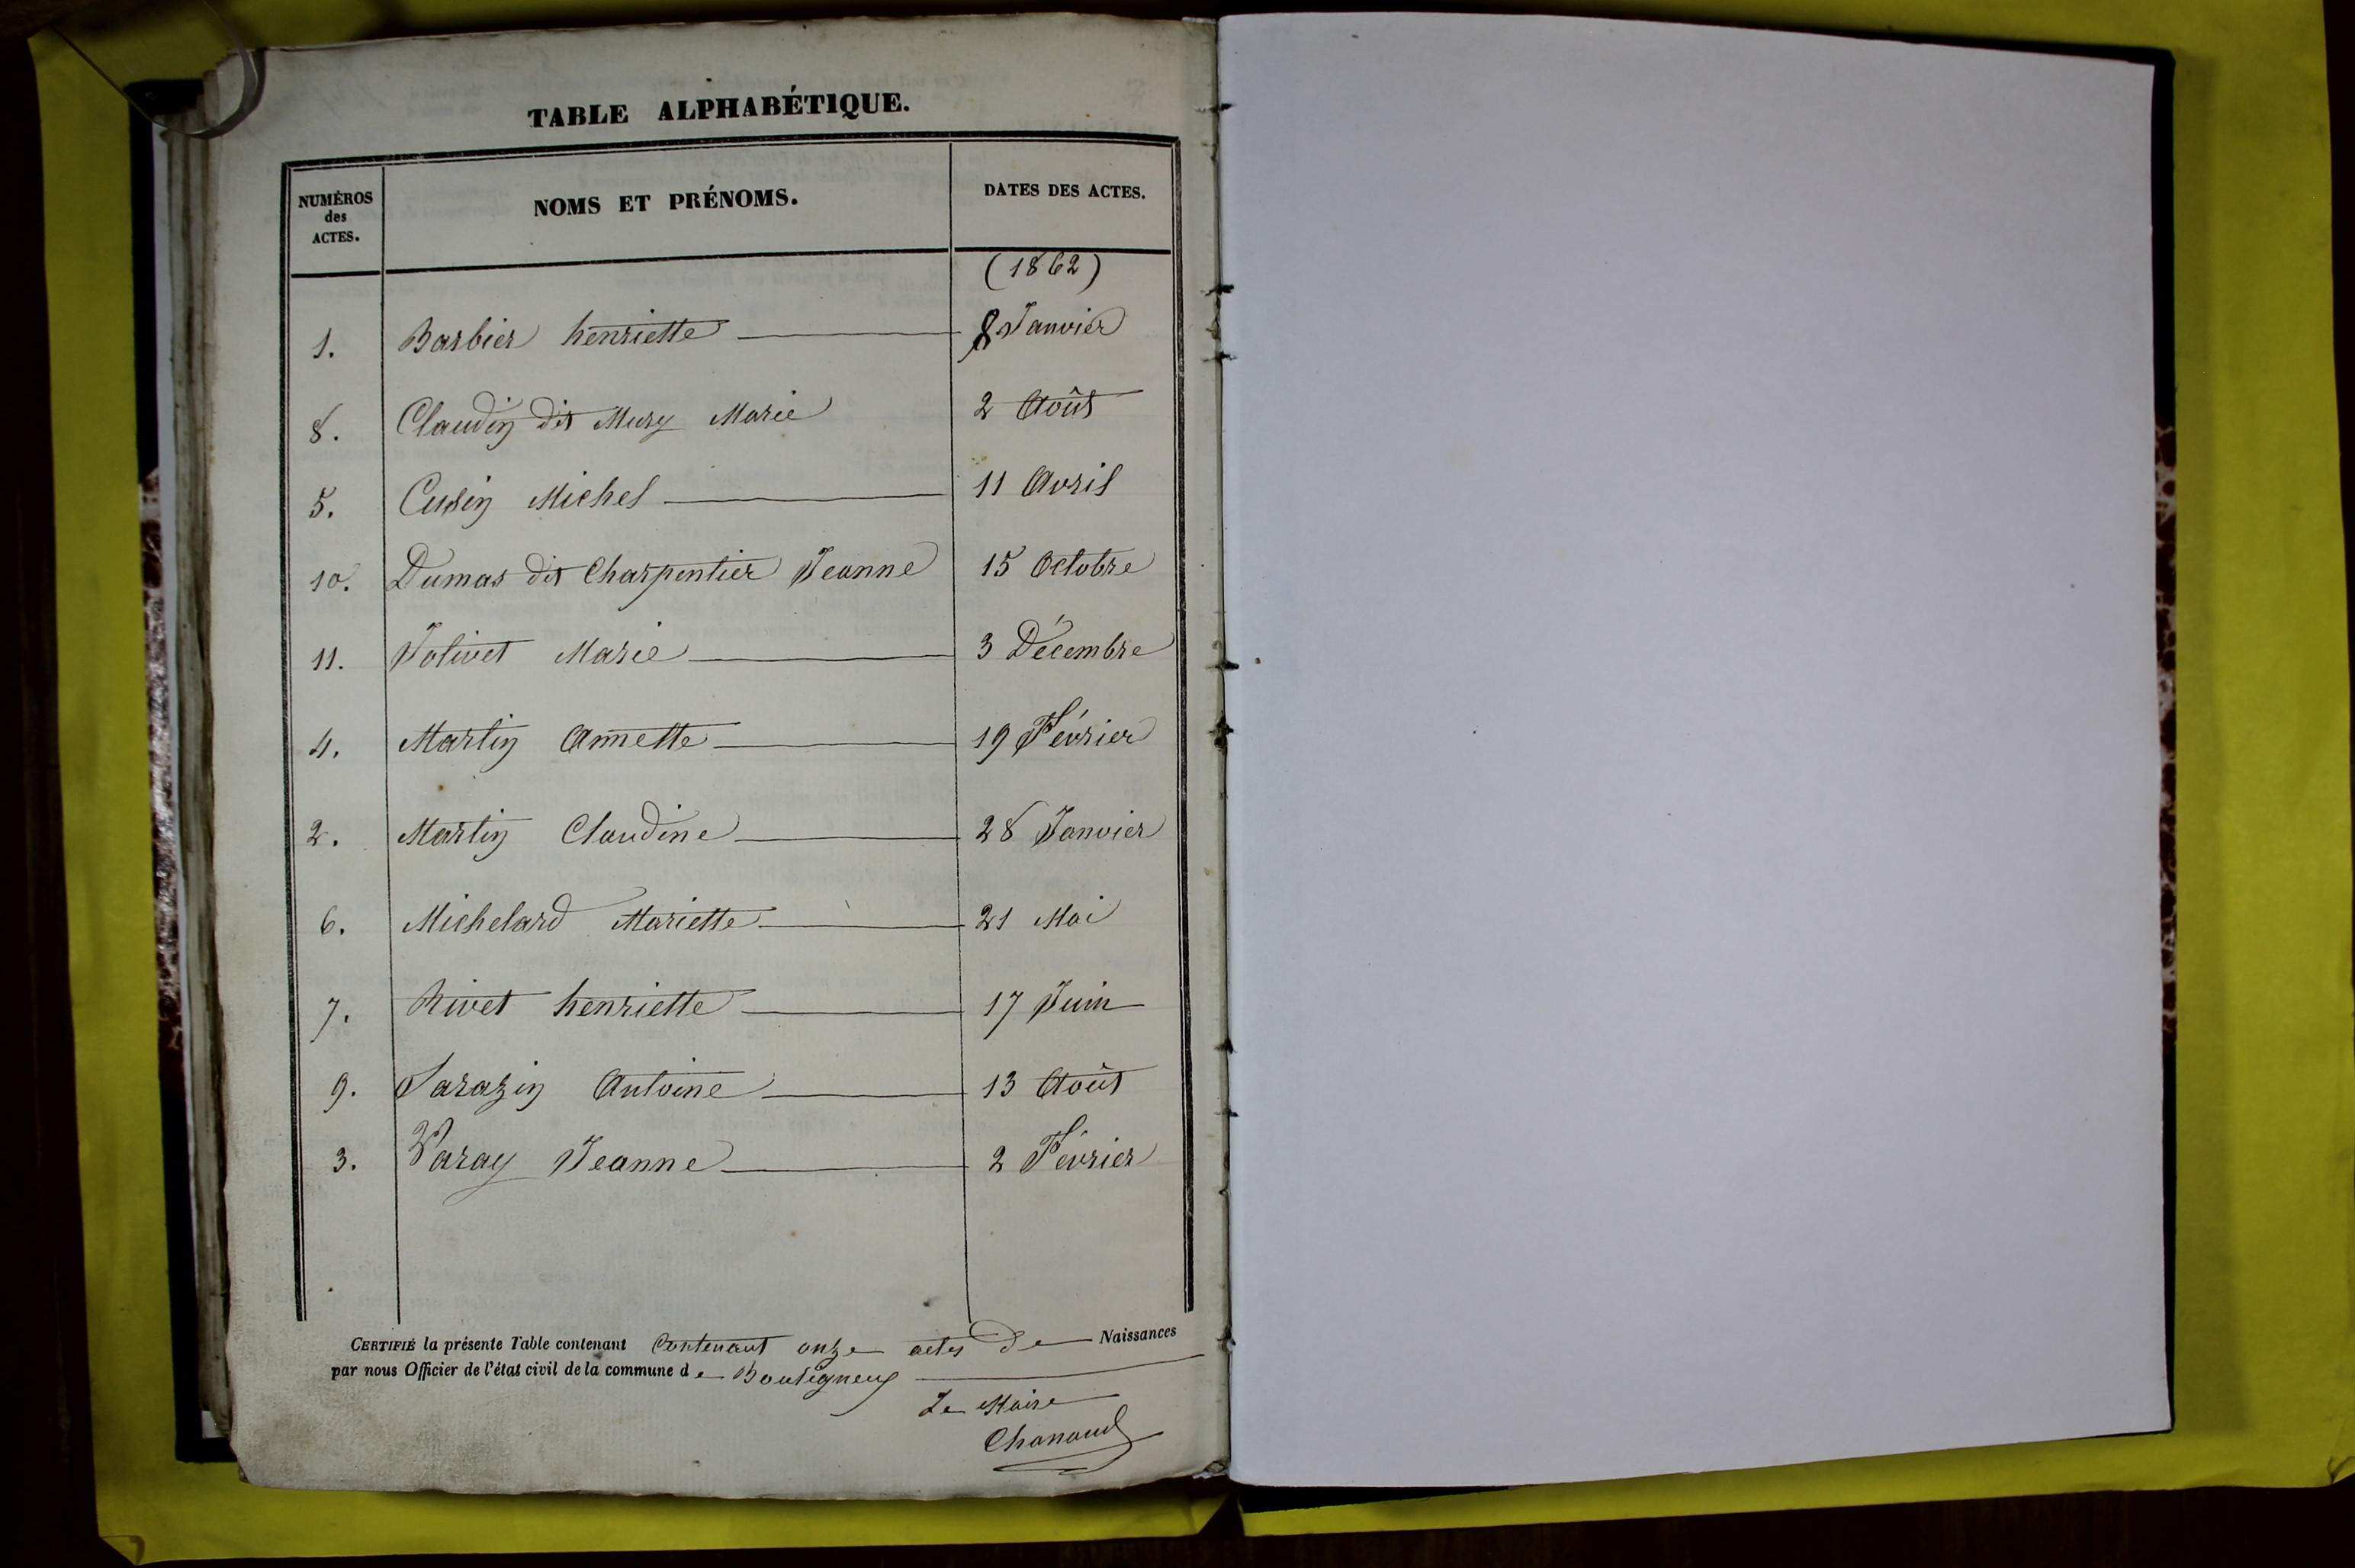 TABLE ALPHABÉTIQUE.
NUMÉROS des ACTES. NOMS ET PRÉNOMS. DATES DES ACTES.
(1862)
1. Barbier henriette 8 Janvier
8. Claudin dit Mury Marie 2 Août
5. Cusin Michel 11 Avril
10. Dumas dit Charpentier Jeanne 15 Octobre
11. Jolivet Marie 3 Décembre
4. Martin Annette 19 Février
2. Martin Claudine 28 Janvier
6. Michelard Mariette 21 Mai
7. Rivet henriette 17 Juin
9. Sarazin Antoine 13 Août
3. Varay Jeanne 2 Février
CERTIFIÉ la présente Table contenant Contenant onze actes de Naissances
par nous Officier de l'état civil de la commune de Bouligneux
Le Maire
Chanaud